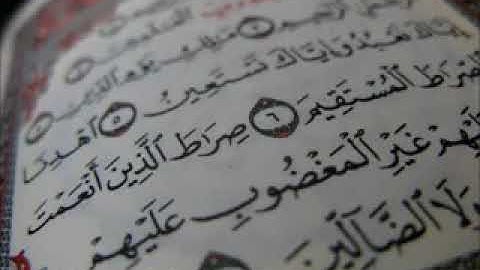 ٱلرَّحِيمِ ٣ مَٰلِكِ يَوْمِ ٱلدِّينِ ٤
إِيَّاكَ نَعْبُدُ وَإِيَّاكَ نَسْتَعِينُ ٥ ٱهْدِنَا
ٱلصِّرَٰطَ ٱلْمُسْتَقِيمَ ٦ صِرَٰطَ ٱلَّذِينَ أَنْعَمْتَ
عَلَيْهِمْ غَيْرِ ٱلْمَغْضُوبِ عَلَيْهِمْ
وَلَا ٱلضَّآلِّينَ